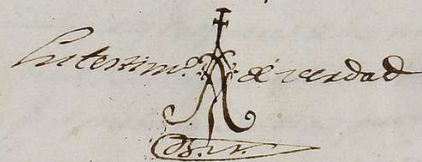 En testimoº de verdad